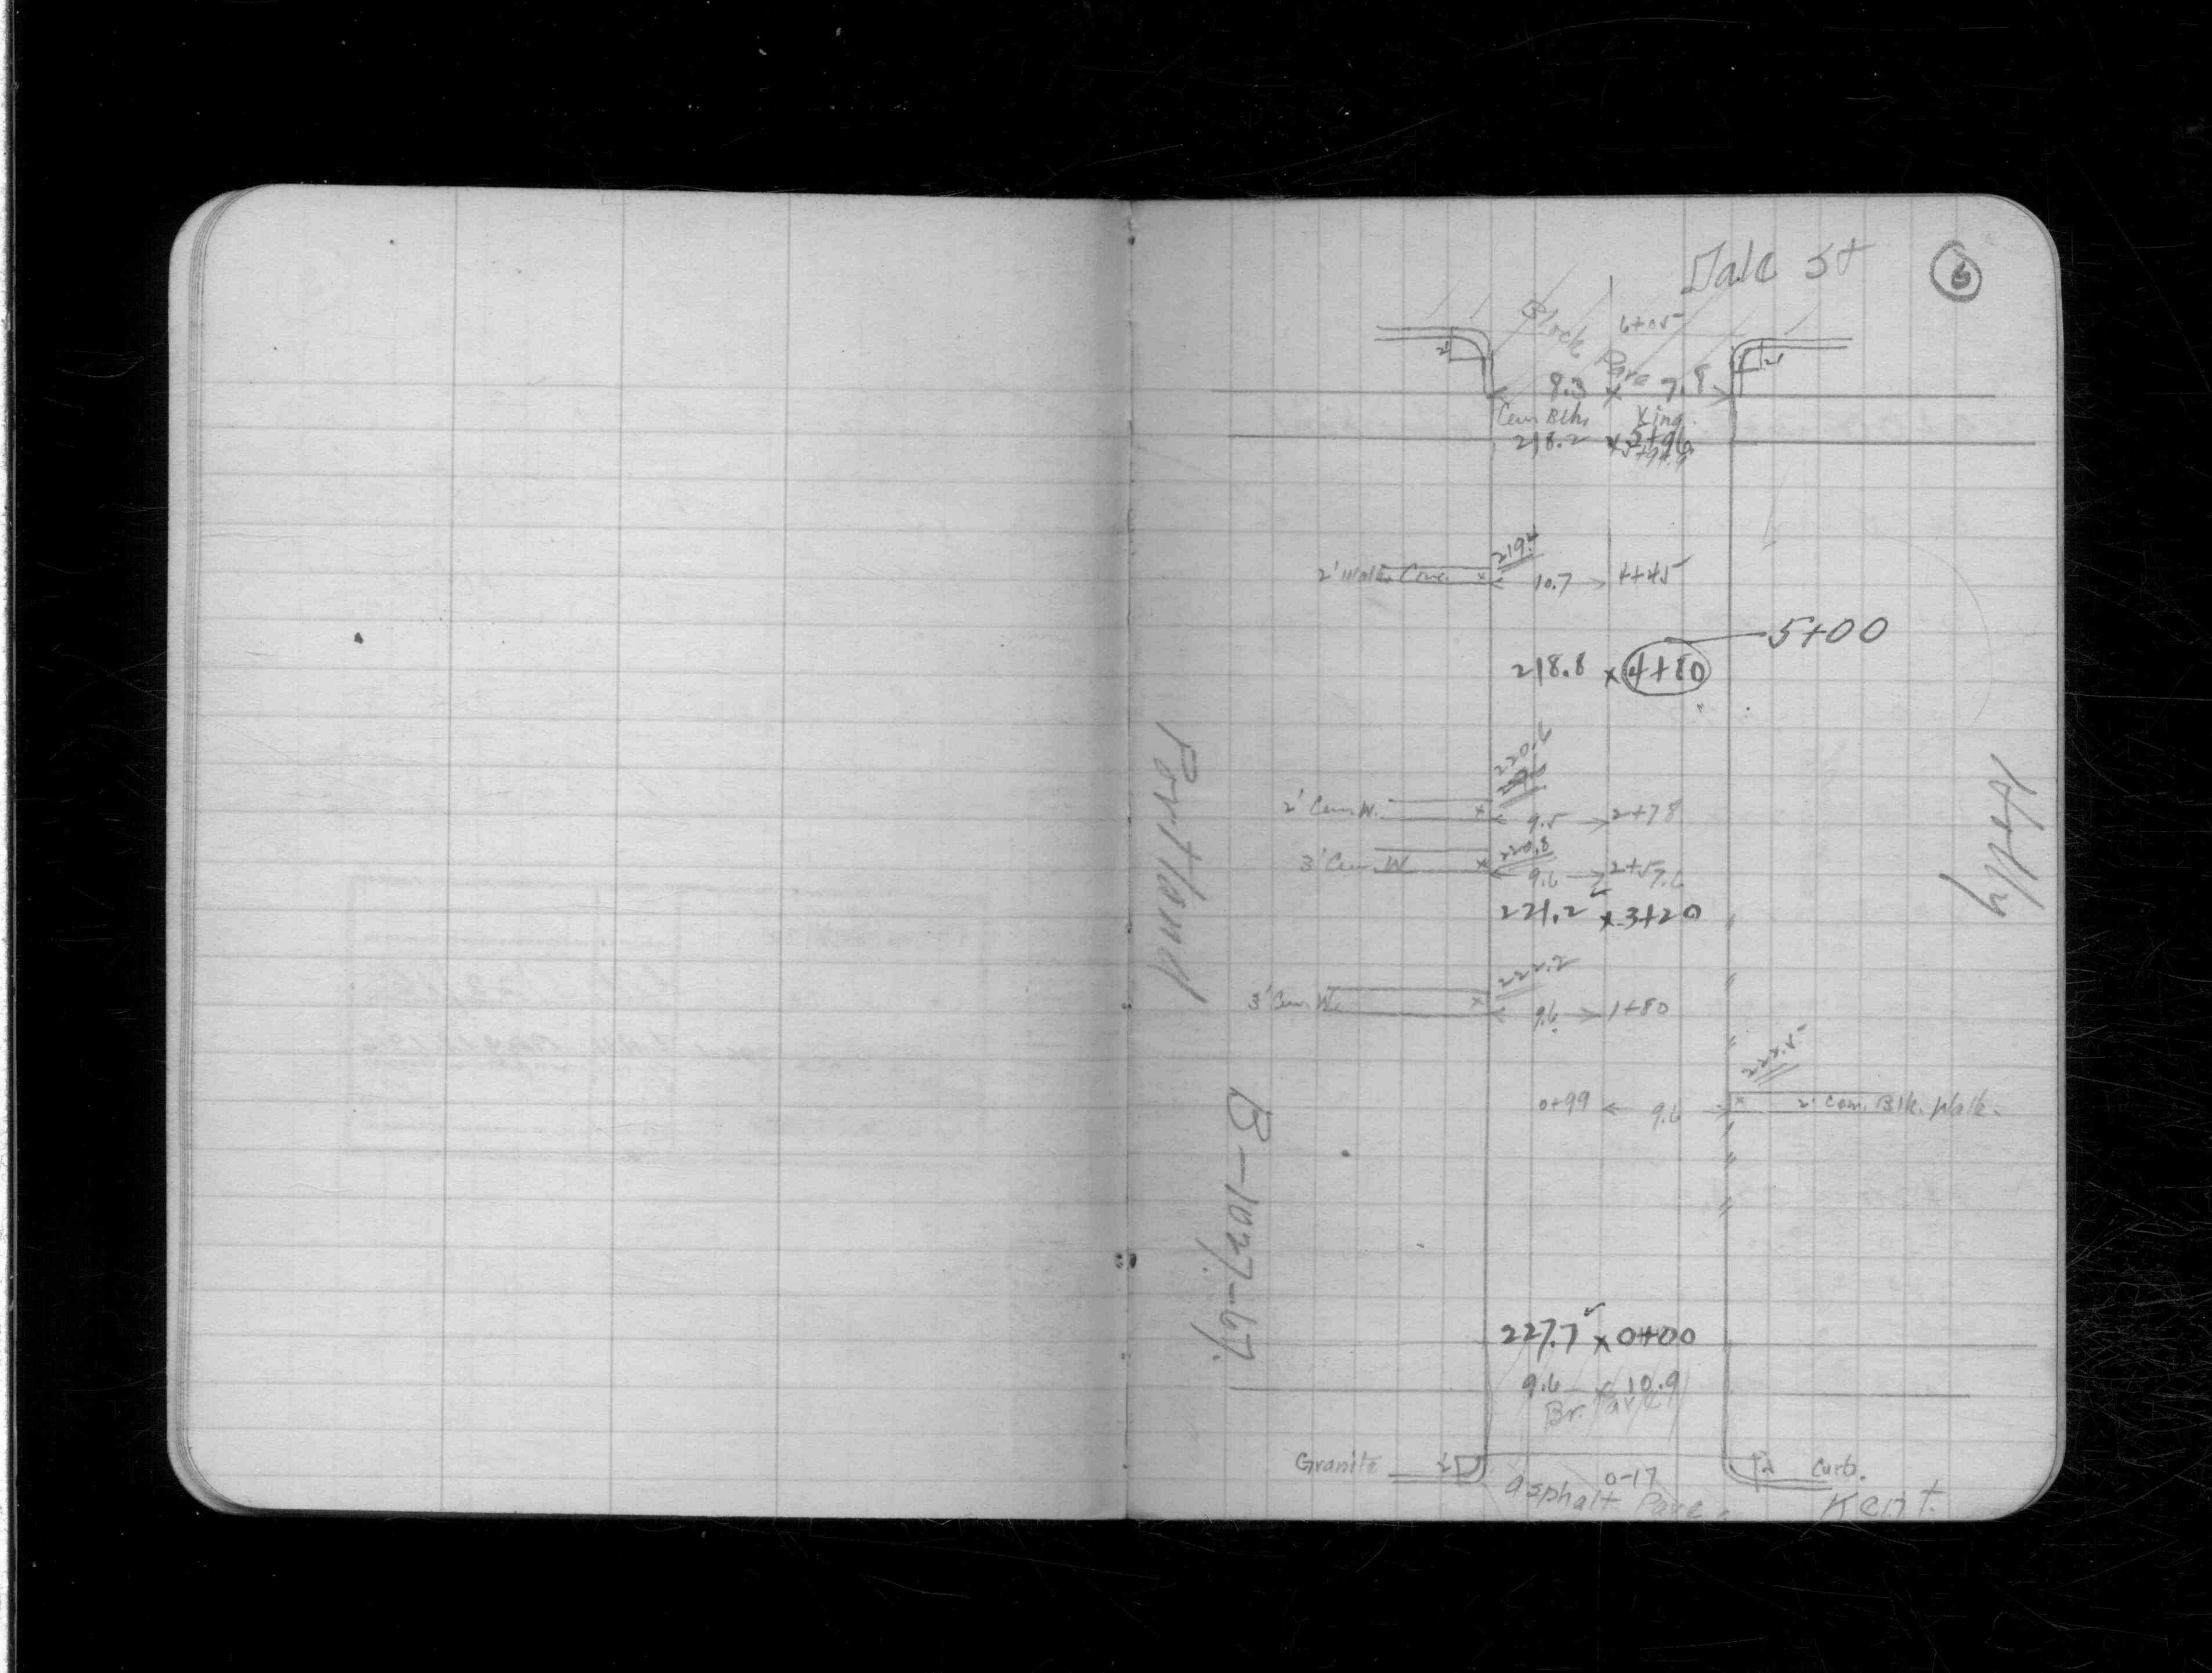 Dale St
6
6+05
Block Pave
2' 2'
8.3 x 7.8
Cem Blk Xing.
218.2 x 5+96
219.4
2' Walk Conc. x 10.7 4+45
5+00
218.8 x 4+80
220.6
2' Cem. W. x 9.5 2+78
220.8
3' Cem. W x 9.6 2+57.6
221.2 x 3+20
222.2
3' Cem. W. x 9.6 1+80
222.5
0+99 9.6 x 2' Cem. Blk. Walk.
Portland
Holly
B-1037-67.
227.7 x 0+00
9.6 x 10.9
Br. Pave
Granite 2' 2' Curb.
0-17
asphalt Pave.
Kent.